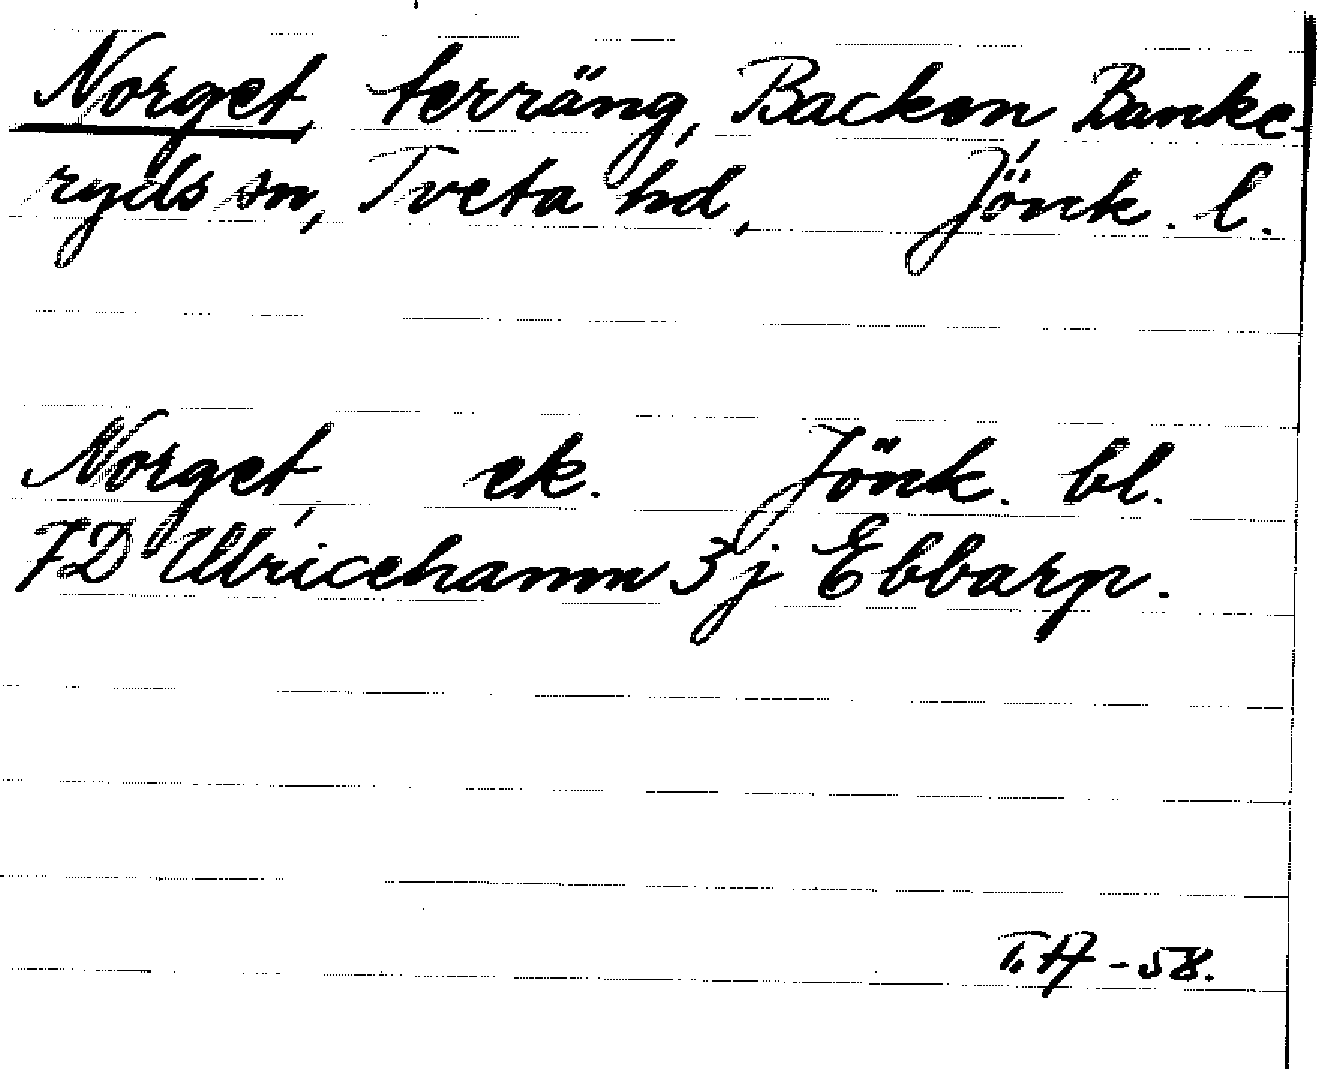 Norget, terräng, Backen, Banke-
ryds sn, Tveta hd, Jönk. l.
Norget, ek. Jönk. bl.
FD Ulricehamn 3j Ebbarp.
T.H-58.